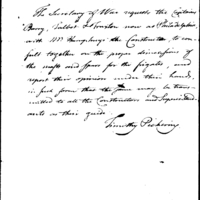 The Secretary of War requests the Captains
Barry, Talbot & Truxton now at Philadelphia
with Mr Humphreys the Constructor to con-
sult together on the proper dimensions of
the masts and spars for the frigates, and
report their opinion under their hands,
in such form that the same may be trans-
mitted to all the Constructors and Superintend-
ants as their guide.
Timothy Pickering